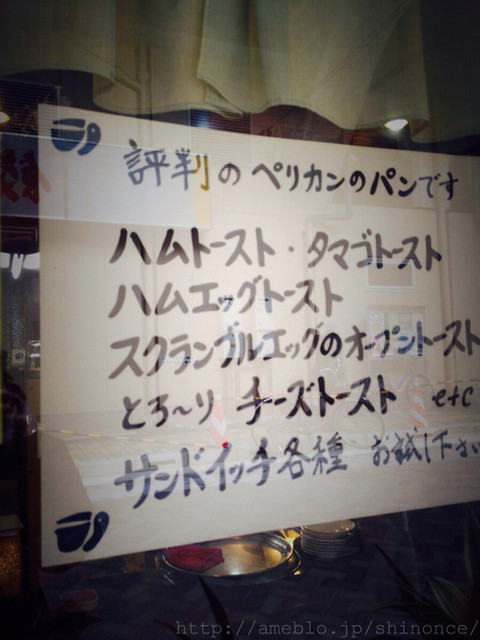 評判のペリカンのパンです
ハムトースト・タマゴトースト
ハムエッグトースト
スクランブルエッグのオープントースト
とろ〜り チーズトースト etc
サンドイッチ各種 お試し下さい
http://ameblo.jp/shinonce/